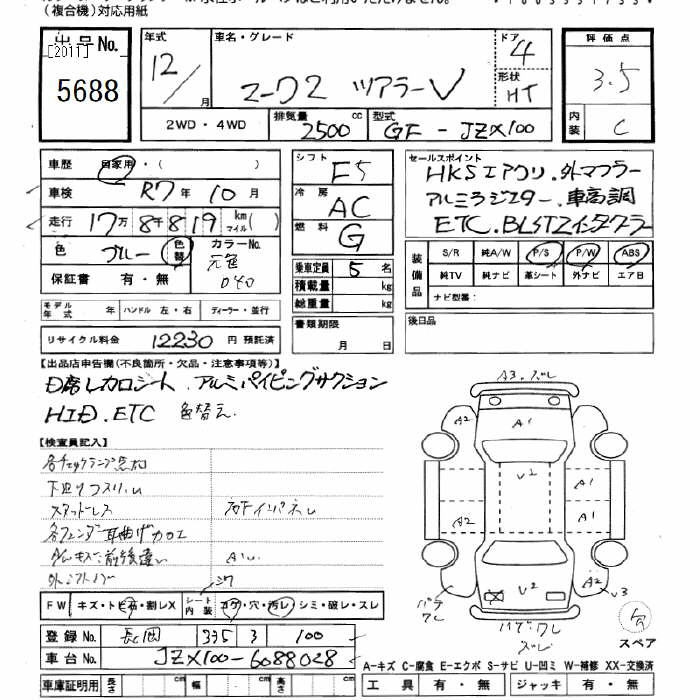 (複合機)対応用紙
出品No. [2011] 5688
年式 12/ 月
車名・グレード マーク2 ツアラーV
ドア 4
形状 HT
評価点 3.5
内装 C
2WD・4WD
排気量 2500 cc
型式 GF - JZX100
車歴 自家用・( )
車検 R7年 10月
走行 17万8千819 km マイル( )
色 ブルー 色替
カラーNo. 元色 040
保証書 有・無
シフト F5
冷房 AC
燃料 G
乗車定員 5 名
積載量 kg
総重量 kg
セールスポイント
HKSエアクリ.外マフラー
アルミラジエター.車高調
ETC.BLITZインタクーラー
装備品 S/R 純A/W P/S P/W ABS
純TV 純ナビ 革シート 外ナビ エアB
ナビ型番:
モデル年式 年 ハンドル 左・右 ディーラー・並行
リサイクル料金 12230 円 預託済
書類期限 月 日
後日品
【出品店申告欄(不良箇所・欠品・注意事項等)】
D席レカロシート.アルミパイピングサクション
HID.ETC 色替え.
【検査員記入】
スタッドレス
各フェンダー耳曲げカロエ
F W キズ・トビ石・割レX
シート内装 コゲ・穴・汚レ・シミ・破レ・スレ
登録No. 長岡 335 3 100
車台No. JZX100-6088028
車庫証明用 長さ cm 幅 cm 高さ cm
A3.ズレ
A1
A2 V2 A1
A2 A1
V2 A2 V3
スペア
A-キズ C-腐食 E-エクボ S-サビ U-凹ミ W-補修 XX-交換済
工具 有・無 ジャッキ 有・無